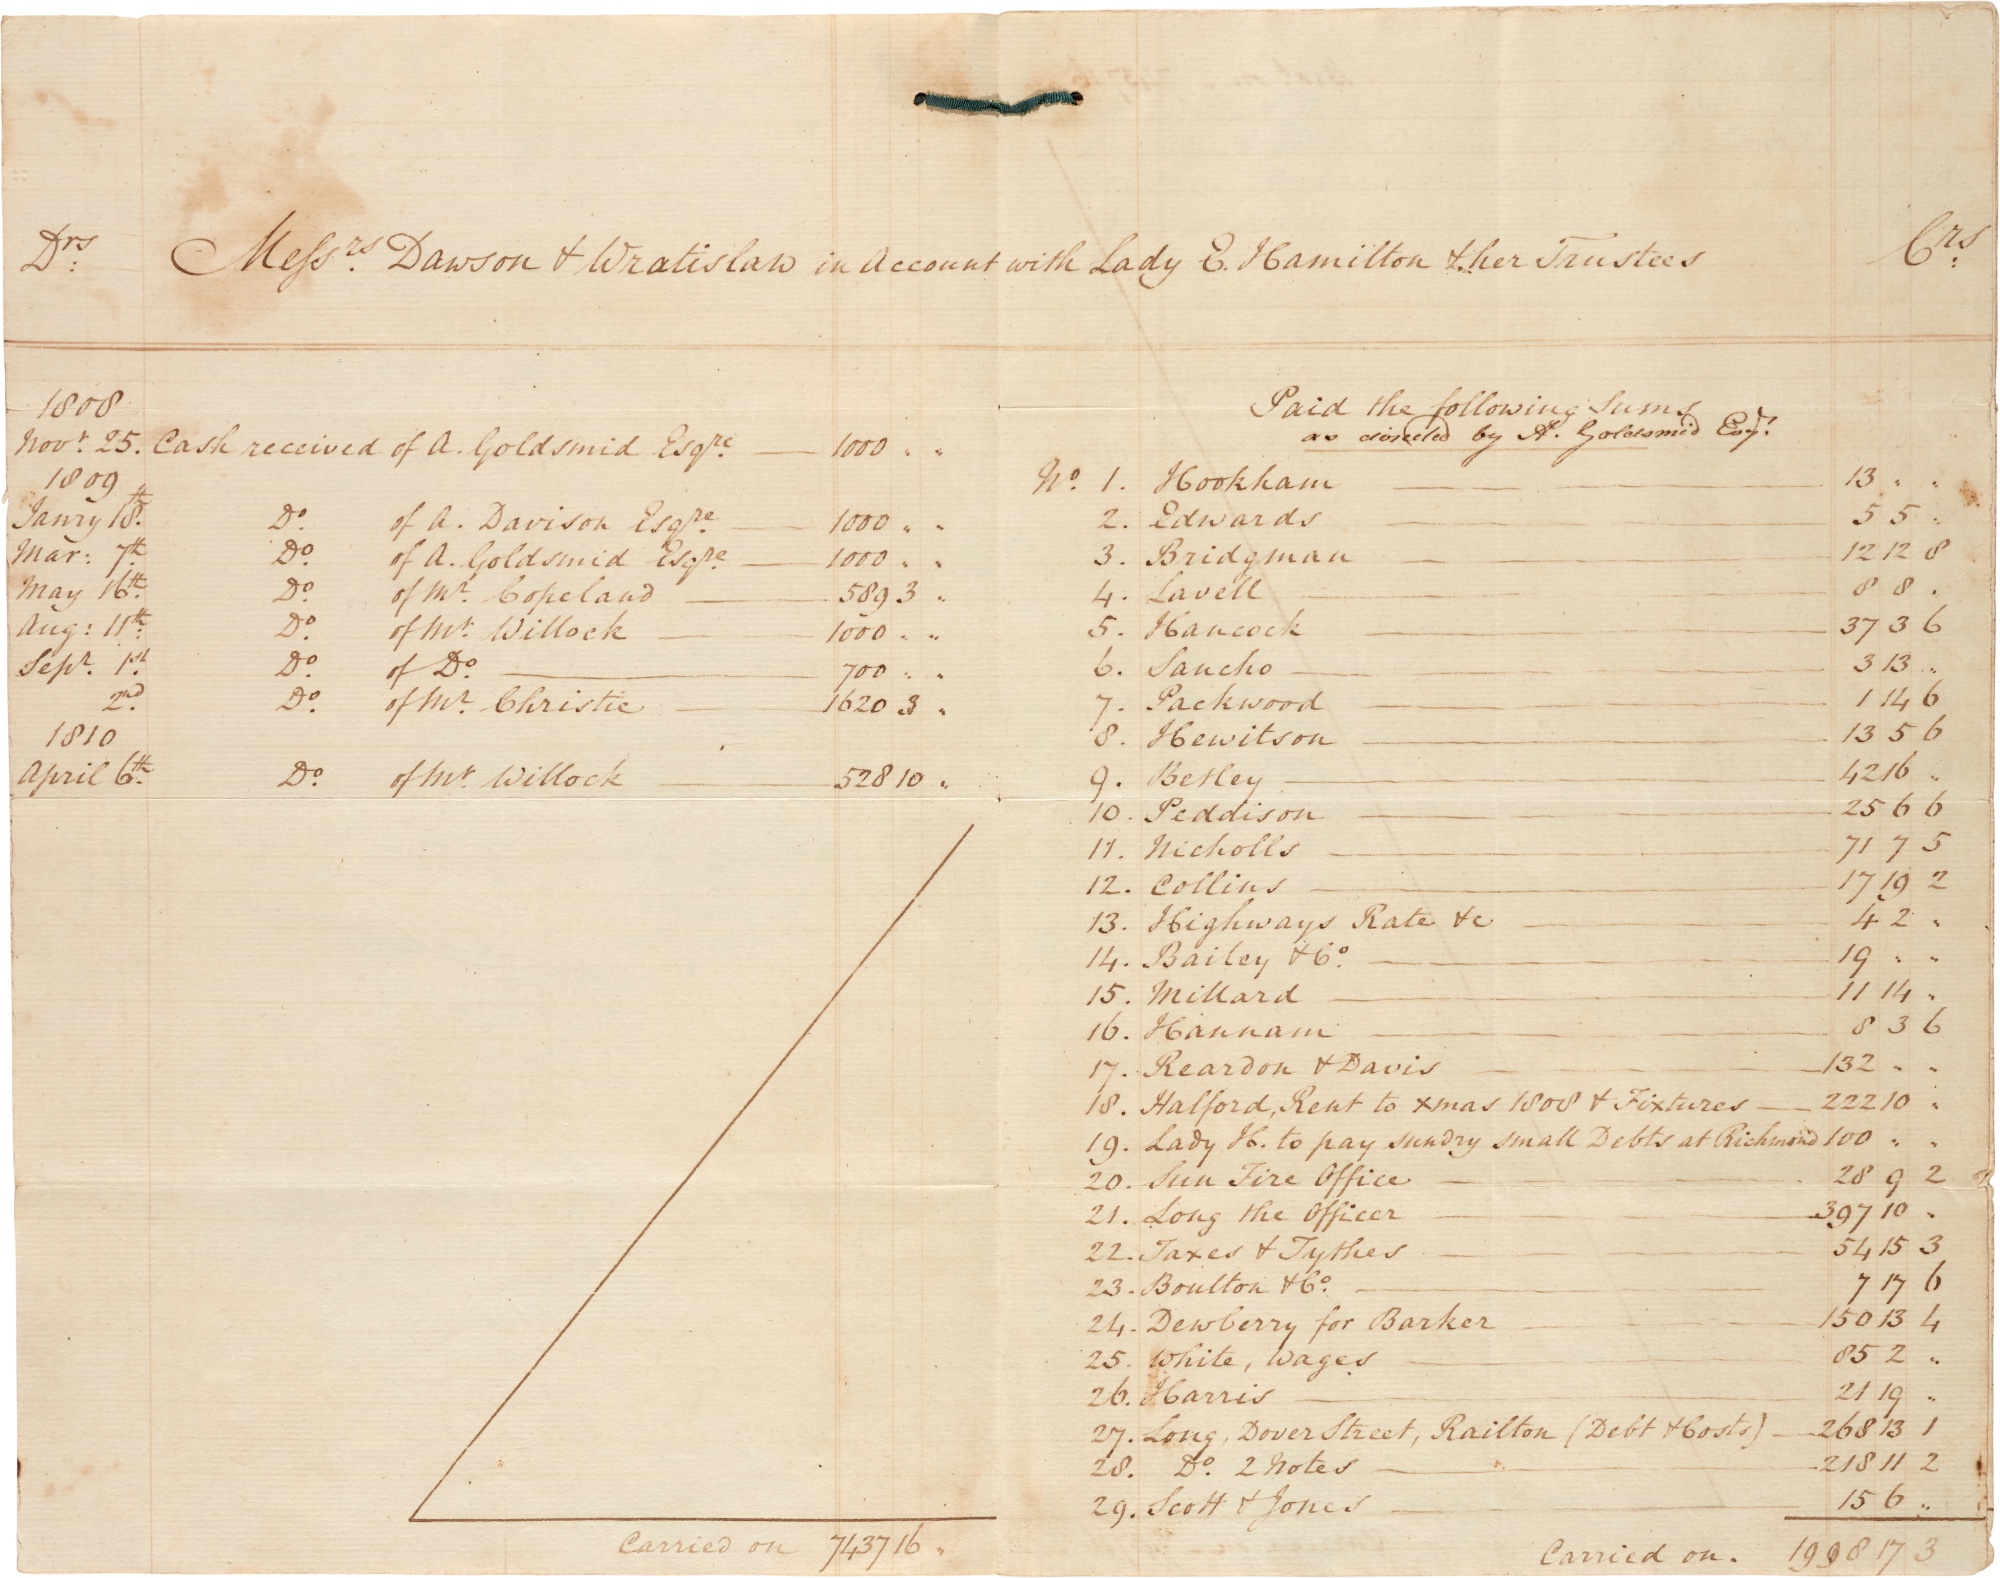 Drs: Messrs. Dawson & Wratislaw in Account with Lady E. Hamilton & her Trustees Crs:
1808
Novr. 25. Cash received of A. Goldsmid Esqre. 1000 " "
1809
Janry 18th. Do. of A. Davison Esqre. 1000 " "
Mar: 7th. Do. of A. Goldsmid Esqre. 1000 " "
May 16th. Do. of Mr. Copeland 589 3 "
Aug: 11th. Do. of Mr. Willock 1000 " "
Sepr. 1st. Do. of Do. 700 " "
2nd. Do. of Mr. Christie 1620 3 "
1810
April 6th. Do. of Mr. Willock 528 10 "
Carried on 7437 16 "
Paid the following Sums
as directed by A. Goldsmid Esqr.
No. 1. Hookham 13 " "
2. Edwards 5 5 "
3. Bridgman 12 12 8
4. Lavell 8 8 "
5. Hancock 37 3 6
6. Sancho 3 13 "
7. Packwood 1 14 6
8. Hewitson 13 5 6
9. Betley 42 16 "
10. Peddison 25 6 6
11. Nicholls 71 7 5
12. Collins 17 19 2
13. Highways Rate &c 4 2 "
14. Bailey & Co. 19 " "
15. Millard 11 14 "
16. Hannam 8 3 6
17. Reardon & Davis 132 " "
18. Halford, Rent to xmas 1808 & Fixtures 222 10 "
19. Lady H. to pay sundry small Debts at Richmond 100 " "
20. Sun Fire Office 28 9 2
21. Long the Officer 397 10 "
22. Taxes & Tythes 54 15 3
23. Boulton & Co. 7 17 6
24. Dewberry for Barker 150 13 4
25. White, Wages 85 2 "
26. Harris 21 19 "
27. Long, Dover Street, Railton (Debt & Costs) 268 13 1
28. Do. 2 Notes 218 11 2
29. Scott & Jones 15 6 "
Carried on. 1998 17 3